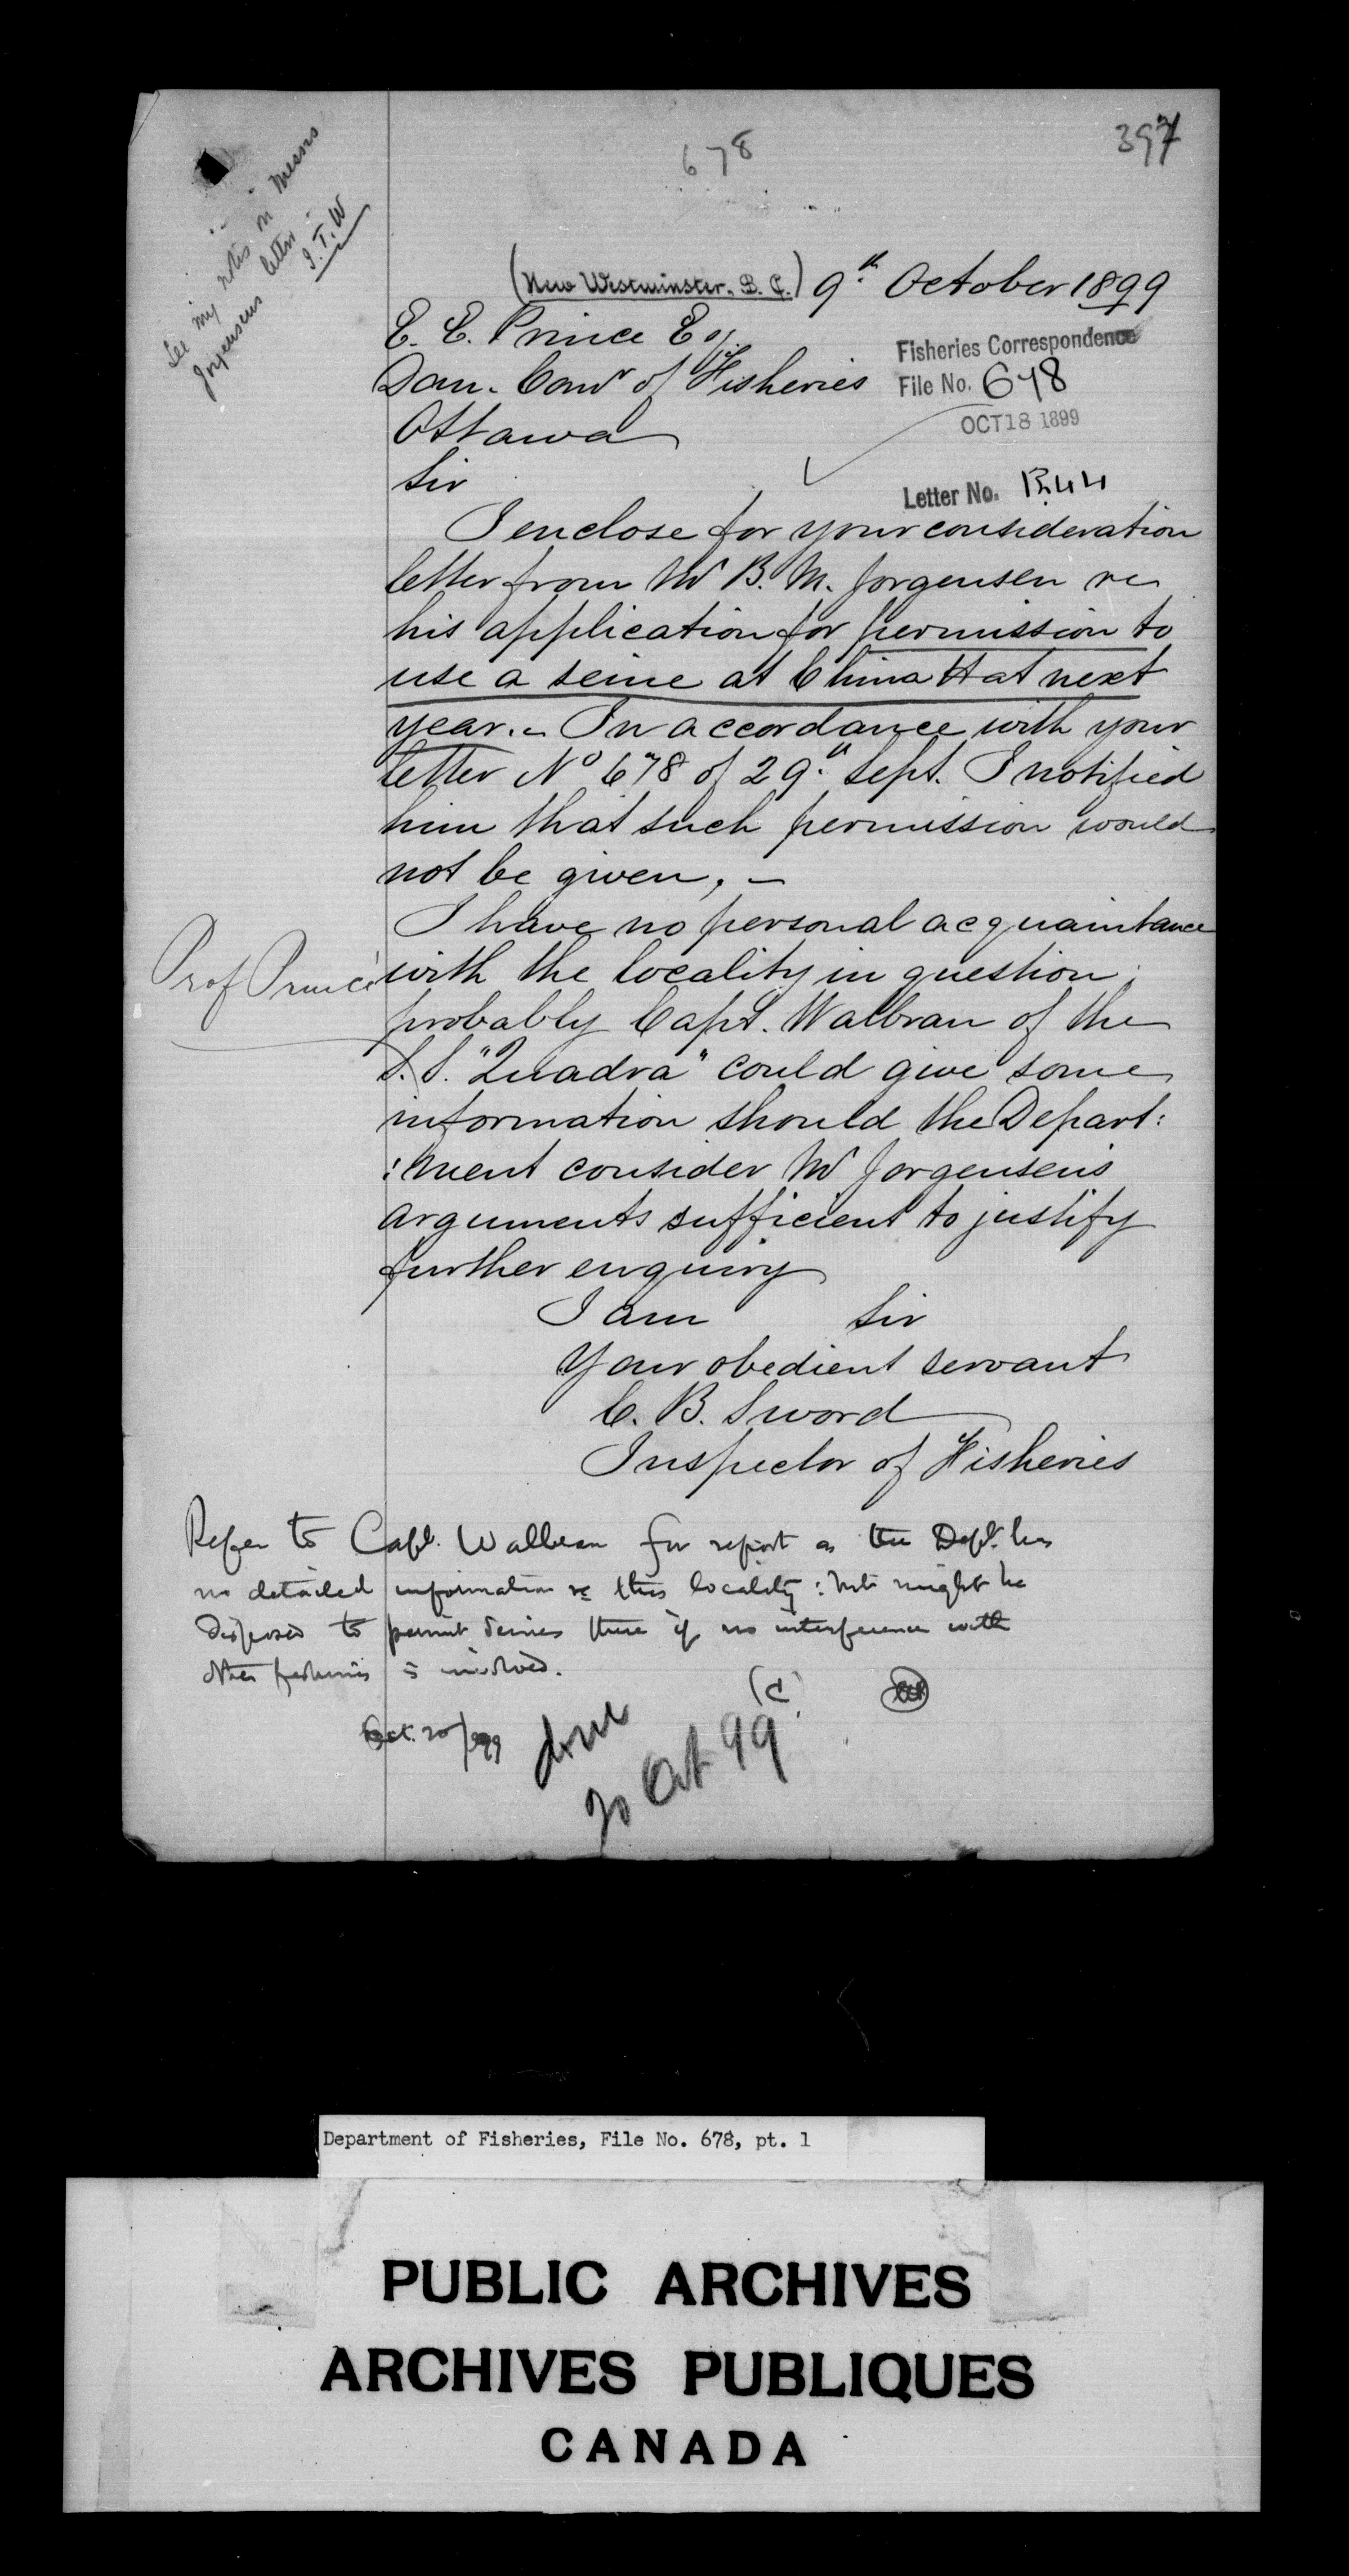 678
397
See my notes on Messrs
Jorgensens letter
I.T.W
(New Westminster. B. C.) 9th October 1899
E. E. Prince Esq.
Dom. Comr of Fisheries
Ottawa
Fisheries Correspondence
File No. 678
OCT 18 1899
Letter No.
Sir
I enclose for your consideration
letter from Mr B. M. Jorgensen re
his application for permission to
use a seine at China Hat next
year. – In accordance with your
letter No 678 of 29th Sept. I notified
him that such permission would
not be given. –
I have no personal acquaintance
Prof Prince
with the locality in question;
probably Capt. Walbran of the
S.S. "Quadra" could give some
information should the Depart:
:ment consider Mr Jorgensen's
arguments sufficient to justify
further enquiry
I am Sir
Your obedient servant
C. B. Sword
Inspector of Fisheries
Refer to Capt. Walbran for report as the Dept. has
no detailed information re this locality: but might be
disposed to permit seines there if no interference with
other fisheries is involved.
Oct. 20/99
done
20 Oct 99
Department of Fisheries, File No. 678, pt. 1
PUBLIC ARCHIVES
ARCHIVES PUBLIQUES
CANADA